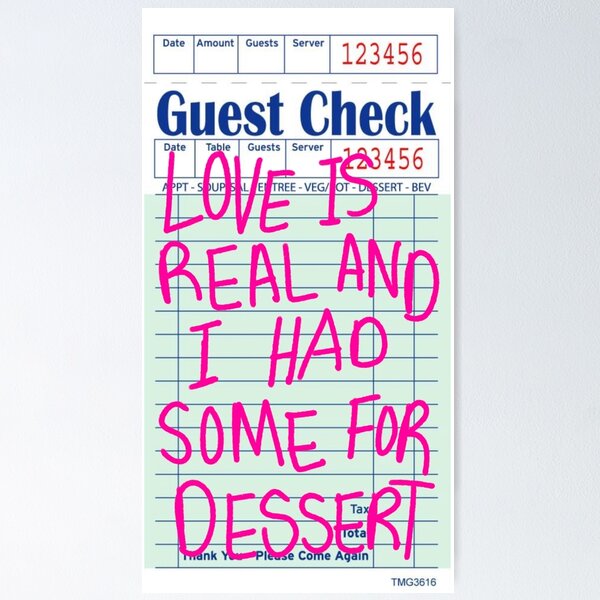 Date Amount Guests Server 123456
Guest Check
Date Table Guests Server 123456
APPT - SOUP/SAL - ENTREE - VEG/POT - DESSERT - BEV
LOVE IS
REAL AND
I HAD
SOME FOR
DESSERT
Tax
Total
Thank You - Please Come Again
TMG3616